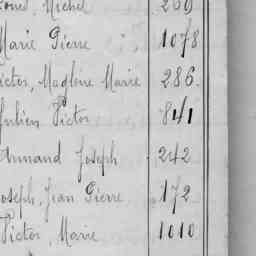 Michel 269
Marie Pierre 1078
Victor, Magloire Marie 286.
Julien Victor 841
Armand Joseph 242
Joseph, Jean Pierre 172
Victor, Marie 1010